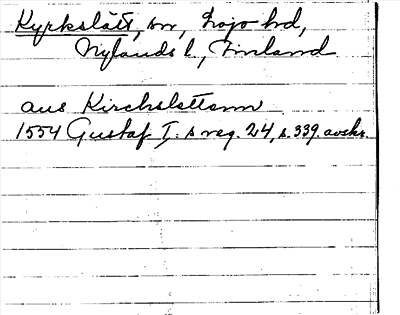 Kyrkslätt, sn, Lojo hd,
Nylands l., Finland
aus Kirchslettenn
1554 Gustaf I:s reg. 24, s. 339. avskr.